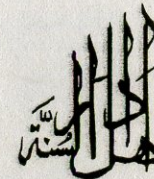 اهل السُنَّة